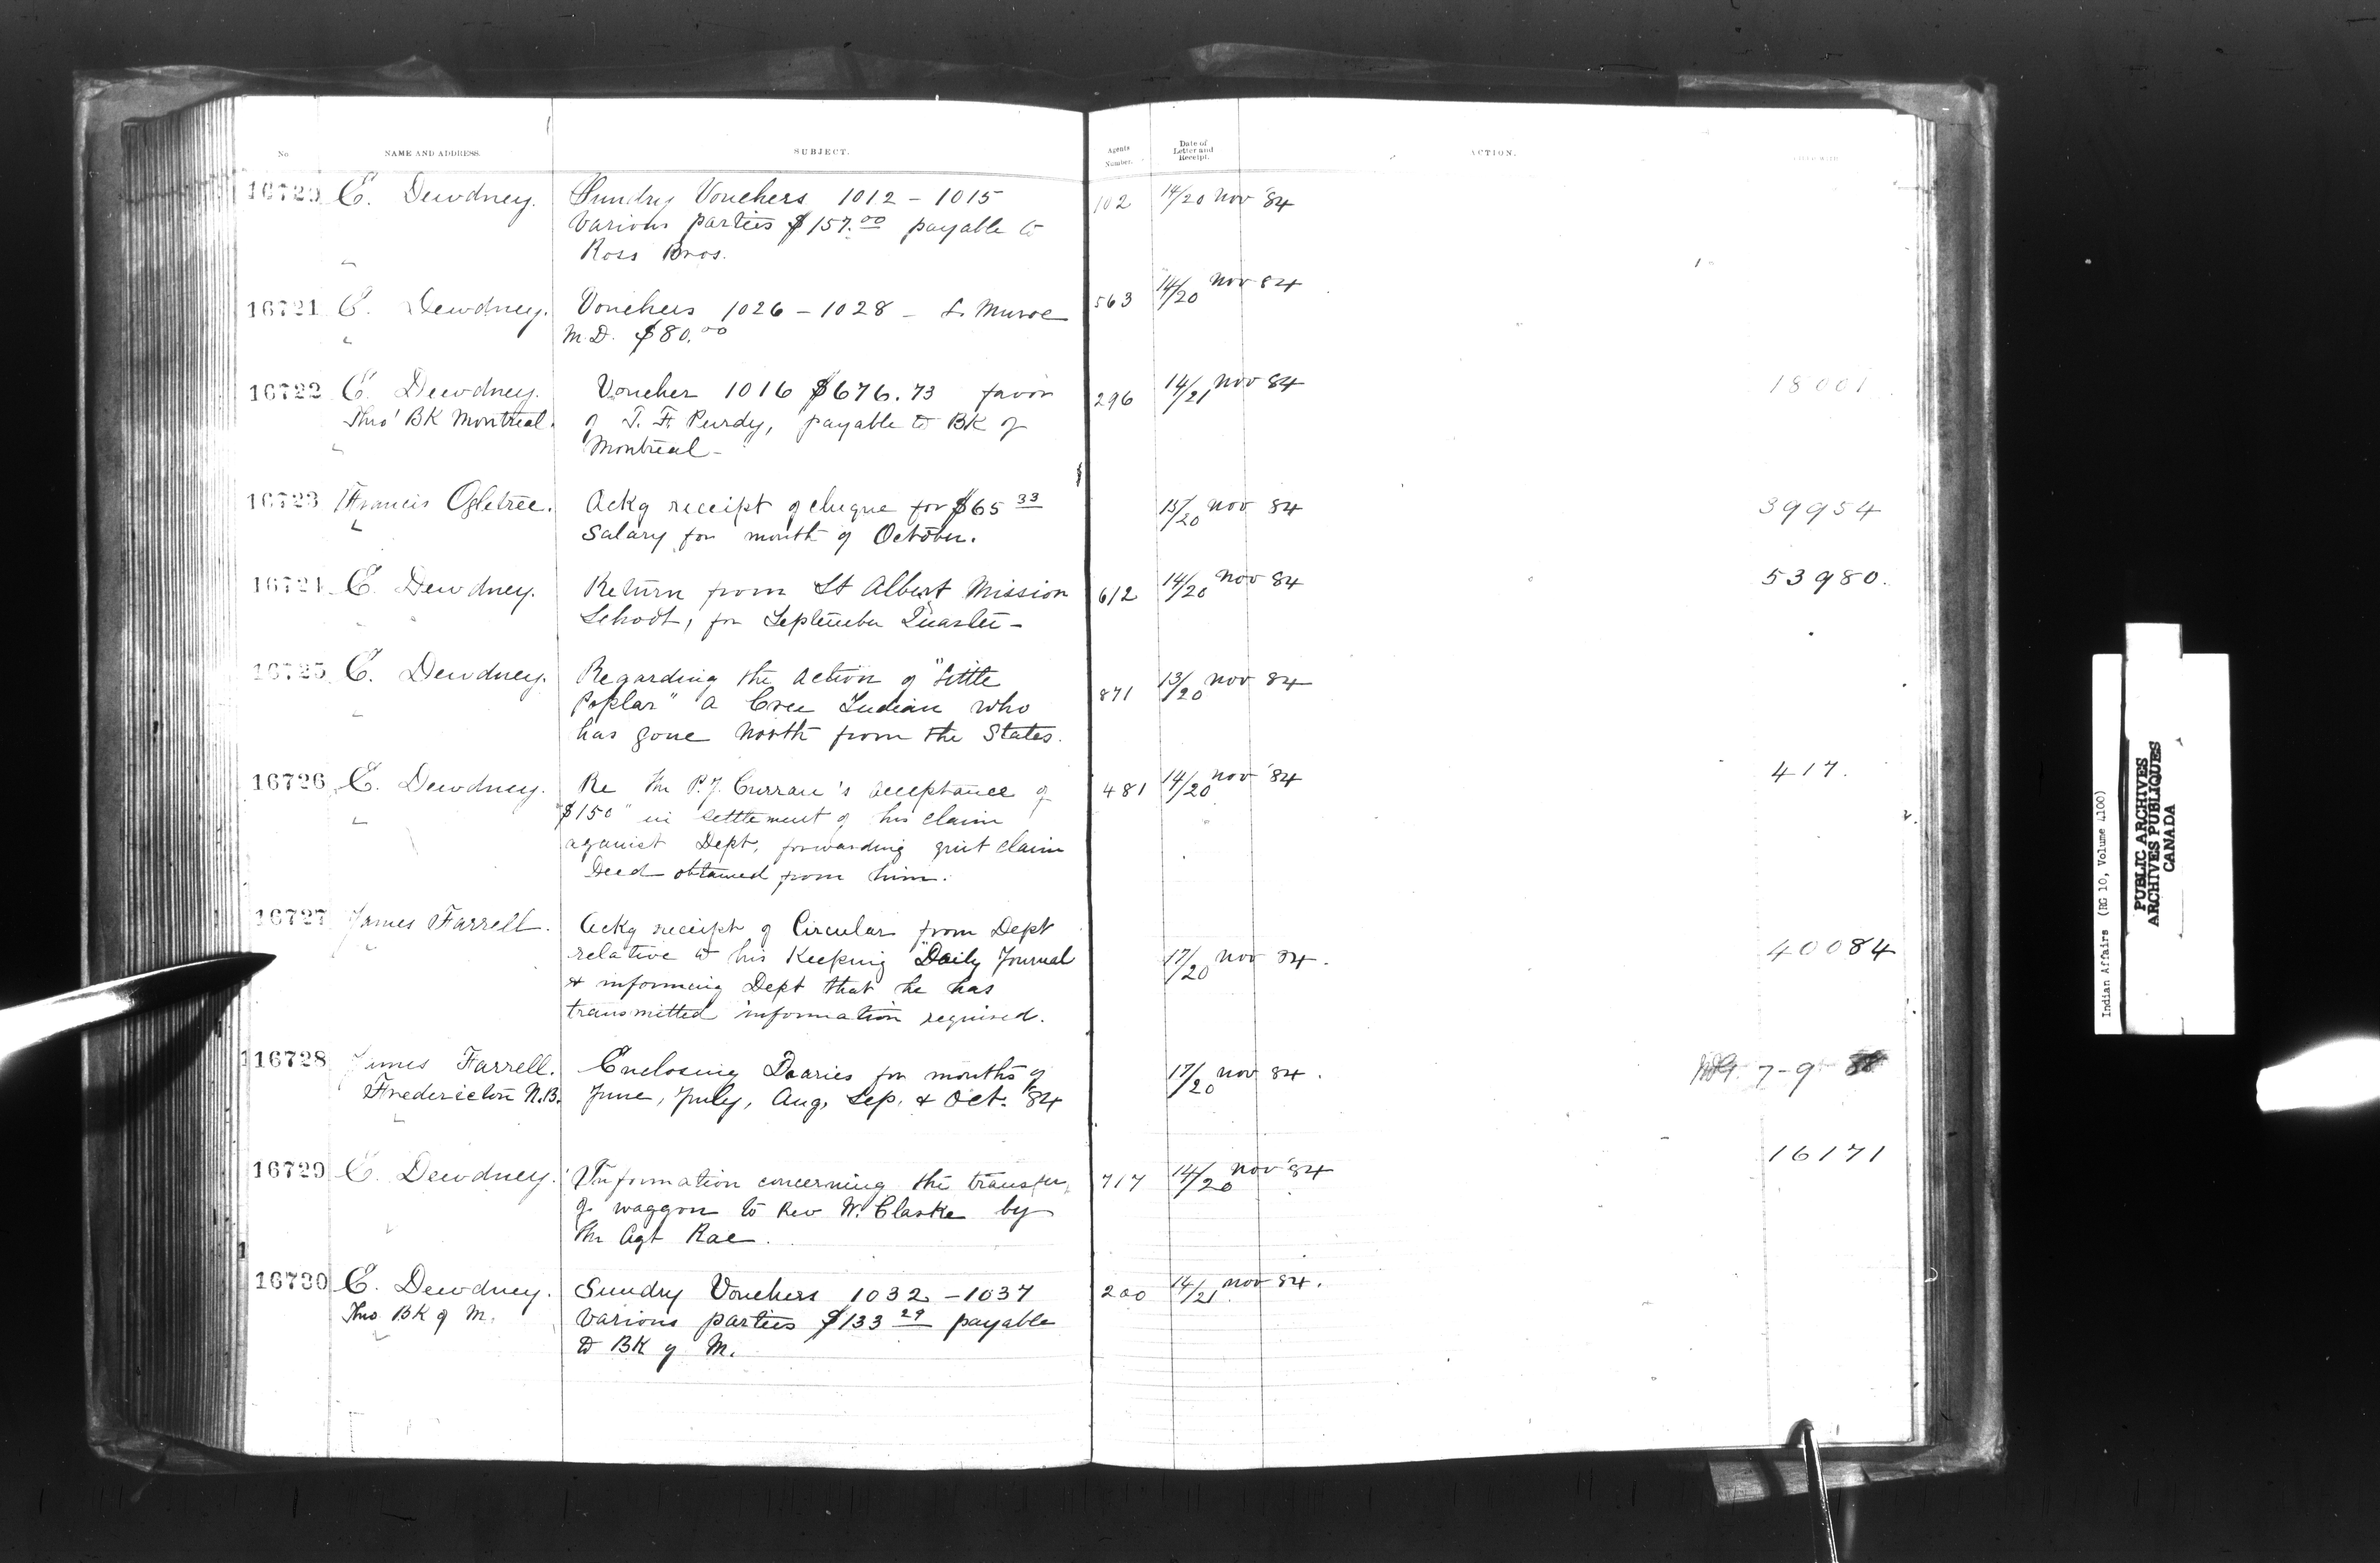 No
NAME AND ADDRESS.
SUBJECT.
Agents Number.
Date of Letter and Receipt.
ACTION.
E. Dewdney. Sundry Vouchers 1012 - 1015 102 14/20 Nov '84
Various parties $157.00 payable to
Ross Bros.
16721 E. Dewdney. Vouchers 1026 - 1028 - L. Munroe 563 14/20 Nov 84
M.D. $80.00
16722 E. Dewdney. Voucher 1016 $676.73 favor 296 14/21 Nov 84 18001
Thro' BK Montreal. of T. F. Purdy, payable to BK of
Montreal -
16723 Francis Ogletree. Ackg receipt of cheque for $65 33 13/20 Nov 84 39954
Salary for month of October.
16724 E. Dewdney. Return from St Albert Mission 612 14/20 Nov 84 53980.
School, for September Quarter -
16725 E. Dewdney. Regarding the action of "Little 871 13/20 Nov 84
Poplar" a Cree Indian who
has gone North from the States.
16726 E. Dewdney. Re Mr P.J. Curran's acceptance of 481 14/20 Nov '84 417.
"$150" in settlement of his claim
against Dept, forwarding quit claim
Deed obtained from him.
16727 James Farrell. Ackg receipt of Circular from Dept 17/20 Nov 84. 40084
relative to his Keeping "Daily Journal
& informing Dept that he has
transmitted information required.
16728 James Farrell. Enclosing Diaries for months of 17/20 Nov 84. 7-9
Fredericton N.B. June, July, Aug, Sep. & Oct. '84
16729 E. Dewdney. Information concerning the transfer 717 14/20 Nov '84 16171
of waggon to Rev W. Clarke by
Mr Agt Rae.
16730 E. Dewdney. Sundry Vouchers 1032 - 1037 200 14/21 Nov 84.
Thro BK of M. Various parties $133 29 payable
to BK of M.
Indian Affairs (RG 10, Volume 4100)
PUBLIC ARCHIVES
ARCHIVES PUBLIQUES
CANADA